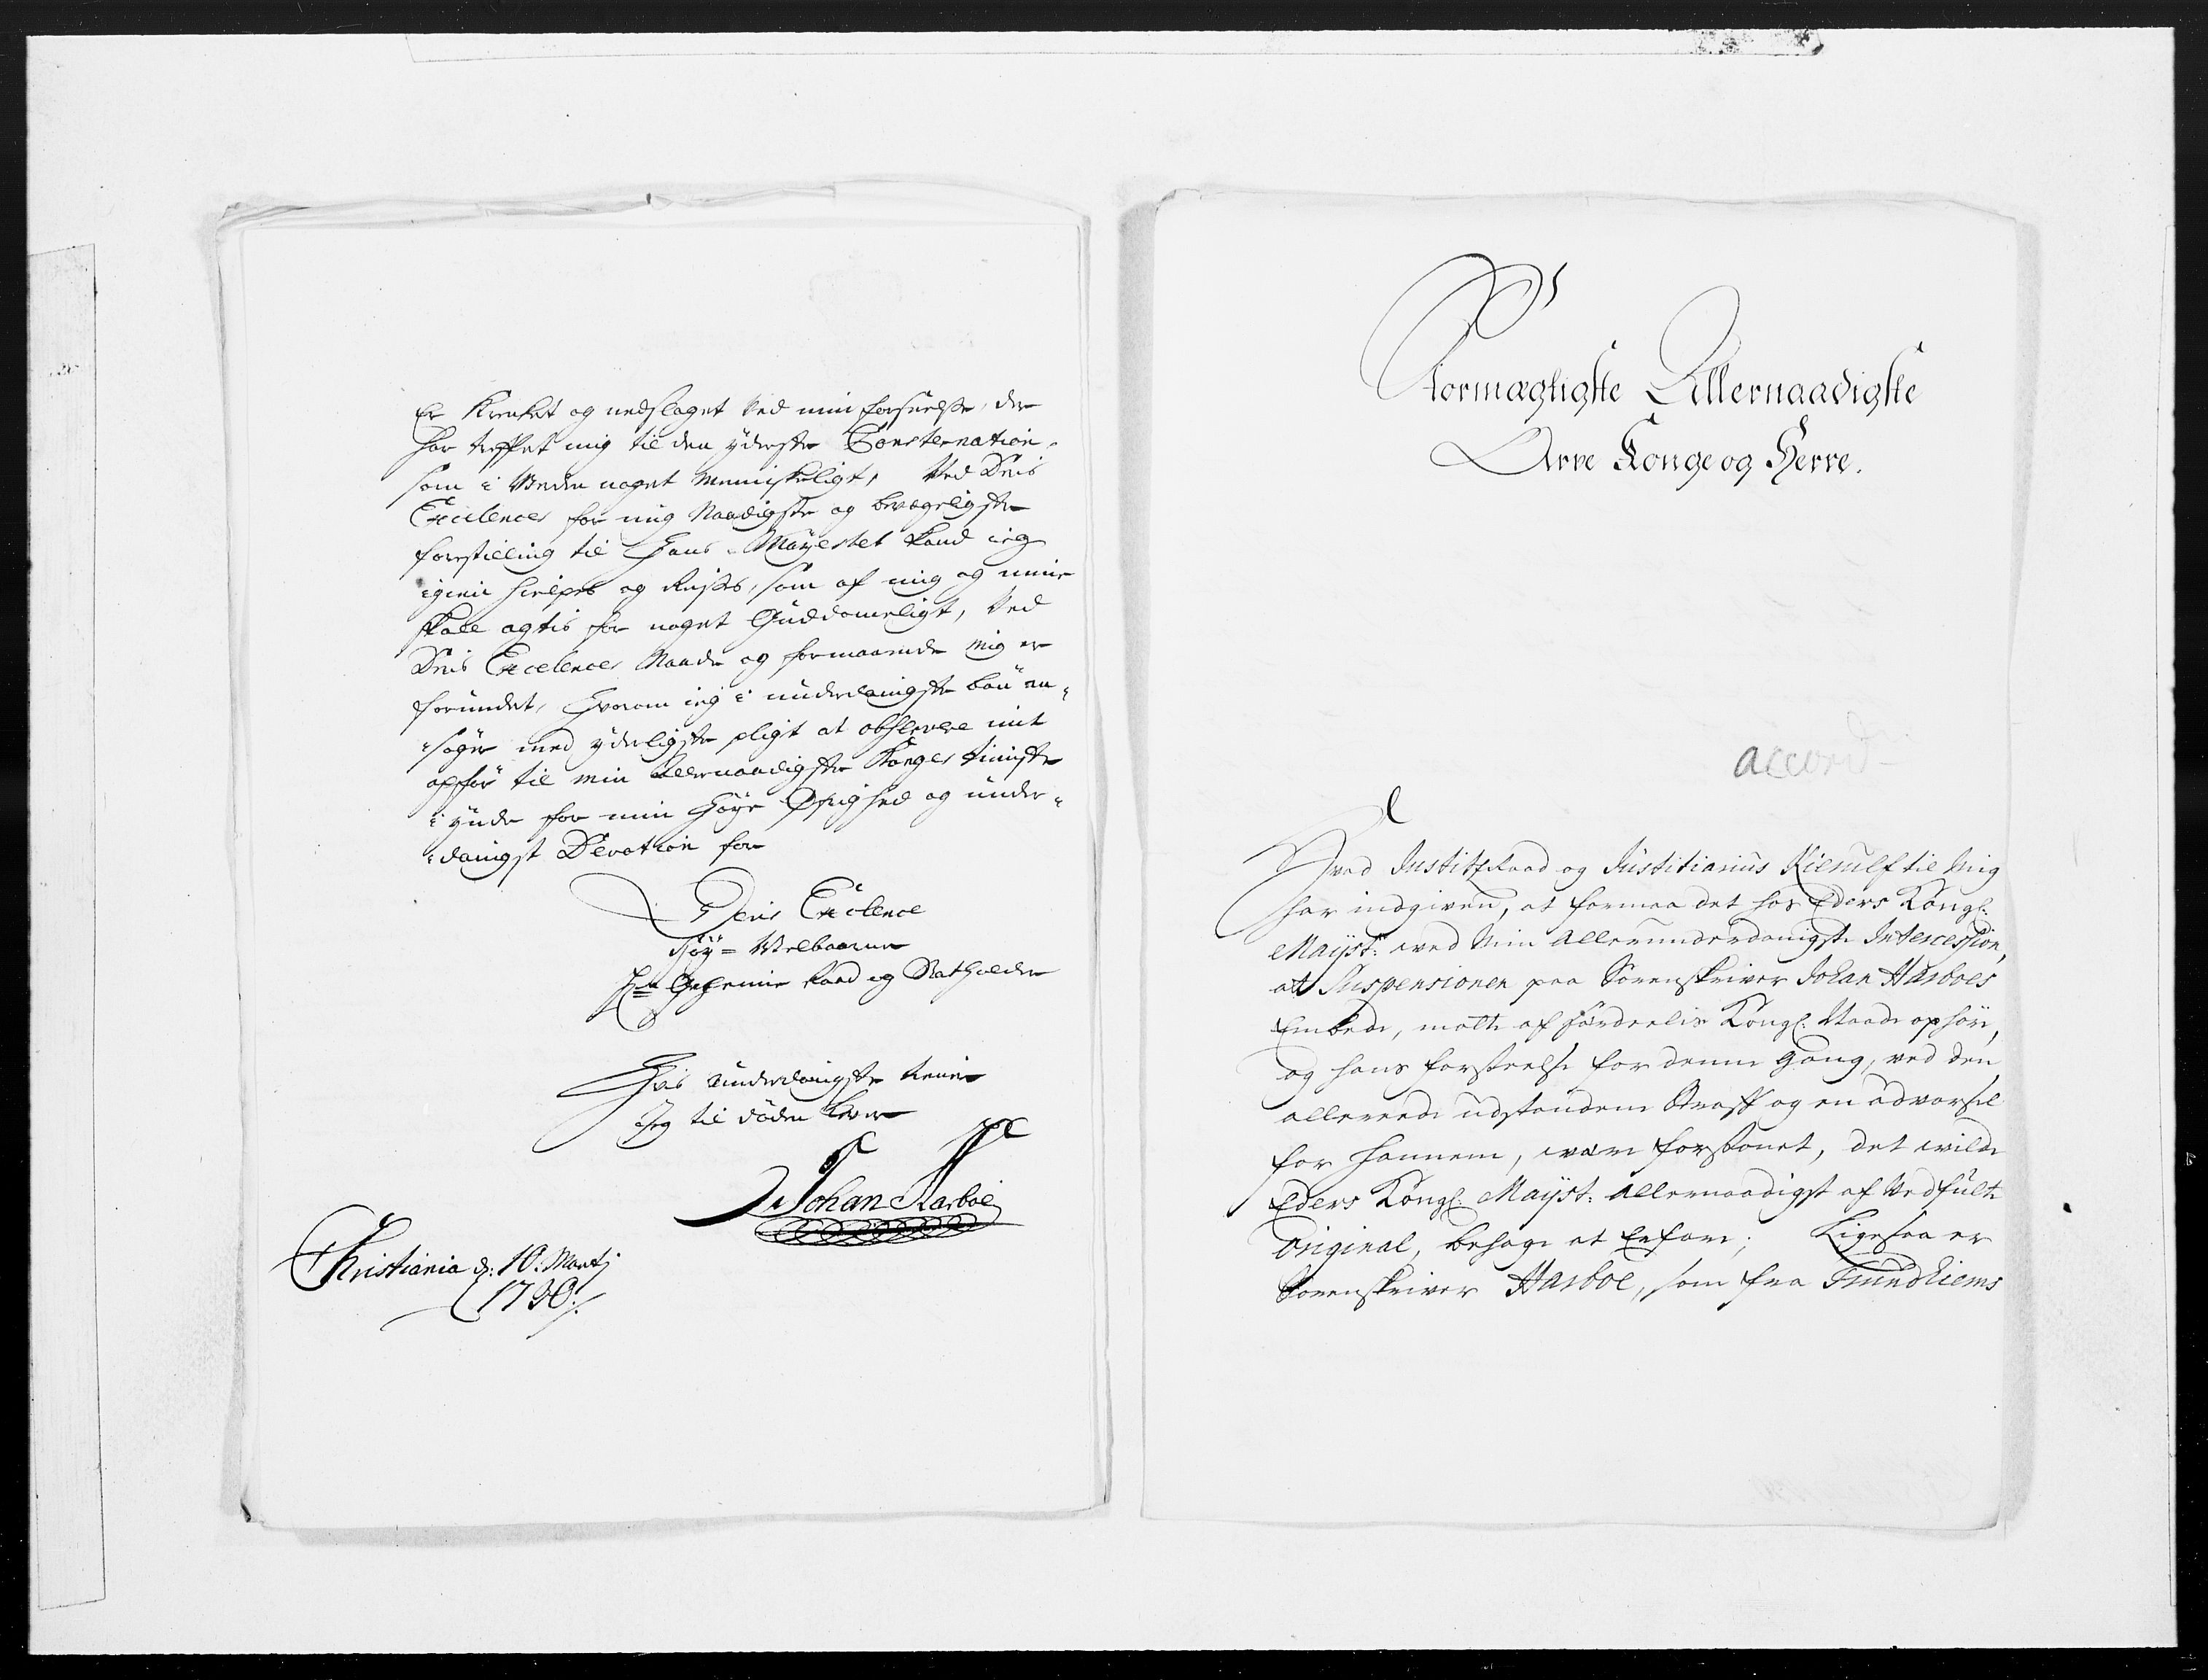 Er Krenket og nedslaget ved min forseelse, der
har treffet mig til den yderste Consternation,
som i Verden noget Menniskeligt, Ved Deris
Excelences for mig Naadigste og bevægeligste
forestilling til Hans Mayestet kand ieg
igien hielpes og Reises, som af mig og mine
skall agtis for noget Guddomeligt, Ved
Deris Excelences Naade og formaaende Mig er
forundet, Hvorom ieg i underdanigste bøn an-
søger med yderligste pligt at observere mit
opför til min Allernaadigste Konges tieniste
i ynde for min Høye Øfrighed og under-
danigst Devotion for
Deris Excelence
Høy= Welbaarne
Hr Geheime Raad og Statholder
Hvis underdanigste tiener
Jeg til døden lever
Johan Harboe
Christiania d: 10. Martj
1730:/
Stormægtigste Allernaadigste
Arve Konge og Herre.
accord
Hvad Justitz Raad og Justitiarius Kierulf til Mig
har indgiven, at formaa det hos Eders Kongl:
Mayst: ved Min Allerunderdanigste Intercession,
at Suspensionen paa Sorenskriver Johan Harboes
Embede, motte af særdeelis Kongl: Naade ophöre,
og hans forseelse for denne Gang, ved den
allereede udstandene Straff og en advarsel
for hannem, være forskonet, det wilde
Eders Kongl: Mayst: Allernaadigst af Vedfulte
Original, behage at Erfare; Ligesaa er
Sorenskriver Harboe, som fra Trundhiems